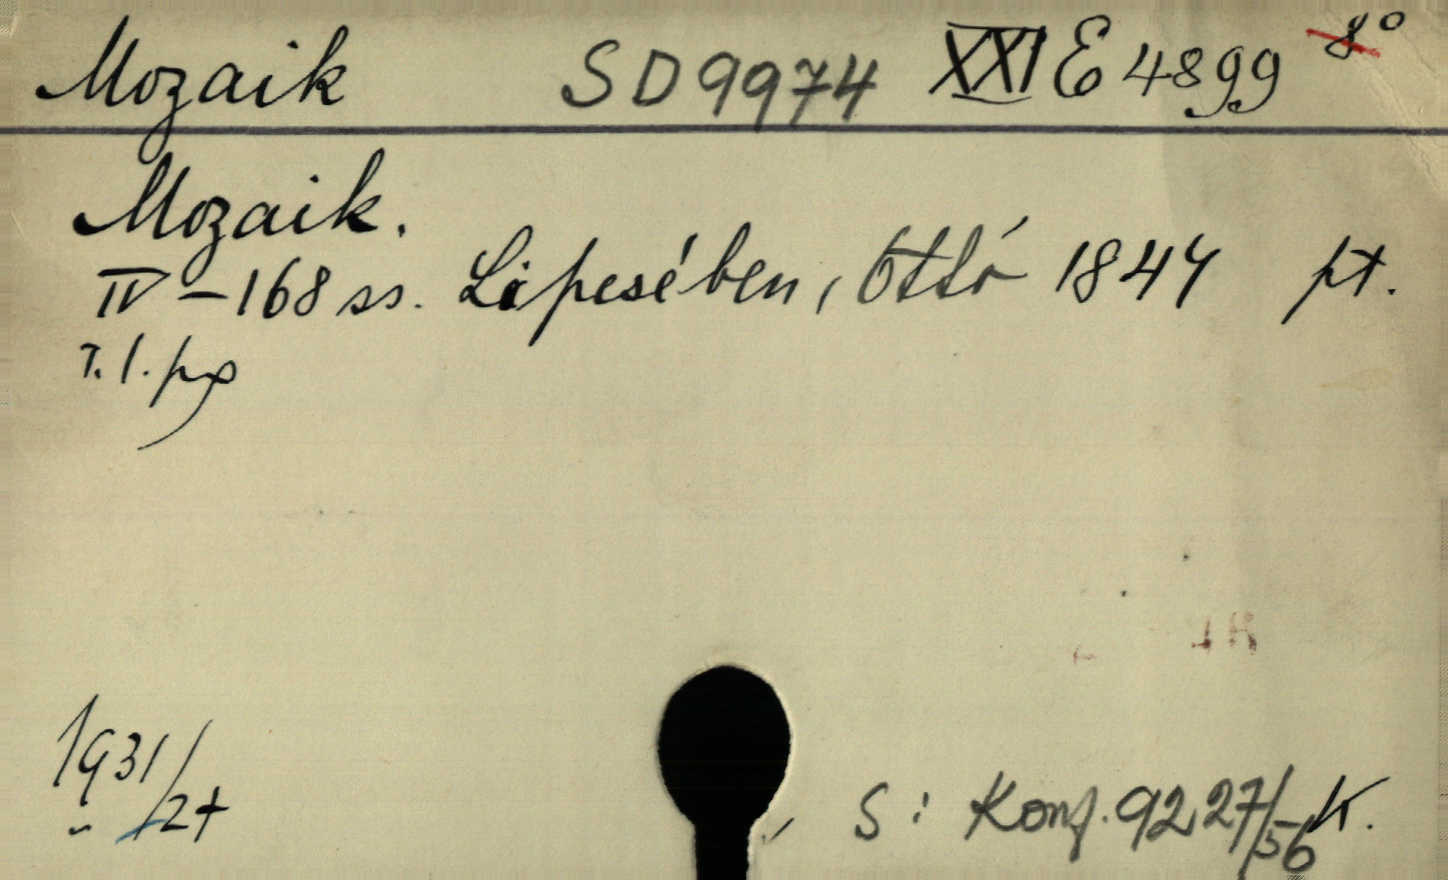 Mozaik SD9974 XXI E 4899 8°
Mozaik.
IV – 168 ss. Lipcsében, Ottó 1847 pt.
T. l. px
1931/27
S: Konf. 9227/56 K.